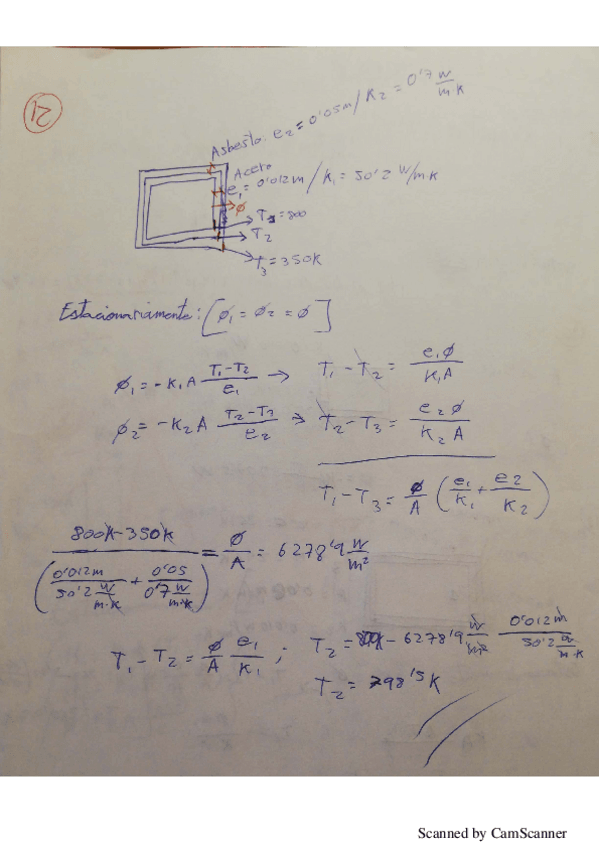 21
Asbesto: e2 = 0'05m / K2 = 0'7 W/m·K
Acero
e1 = 0'012m / K1 = 50'2 W/m·K
ϕ
T1 = 800
T2
T3 = 350K
Estacionariamente: [ϕ1 = ϕ2 = ϕ]
ϕ1 = -K1 A (T1-T2)/e1 → T1 - T2 = e1ϕ/K1A
ϕ2 = -K2 A (T2-T3)/e2 → T2 - T3 = e2 ϕ/K2 A
T1 - T3 = ϕ/A (e1/K1 + e2/K2)
(800K-350K)/(0'012m/50'2 W/m·K + 0'05/0'7 W/m·K) = ϕ/A = 6278'9 W/m²
T1 - T2 = ϕ/A e1/K1 ; T2 = - 6278'9 W/m² 0'012m/50'2 W/m·K
T2 = 798'5 K
Scanned by CamScanner